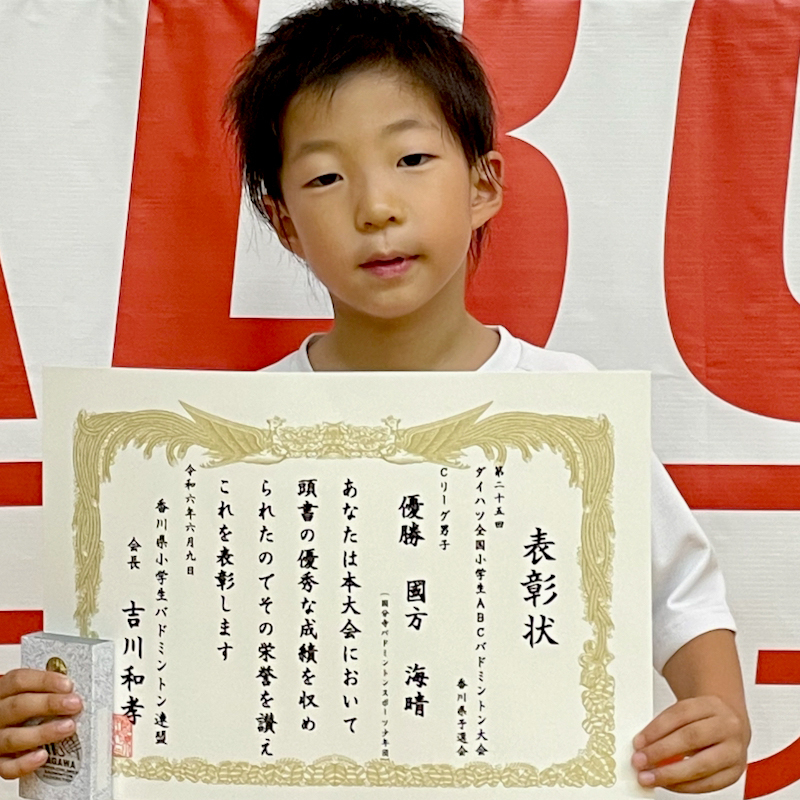 表彰状
第二十五回
ダイハツ全国小学生ABCバドミントン大会
香川県予選会
Cリーグ男子
優勝 國方 海晴
(国分寺バドミントンスポーツ少年団)
あなたは本大会において
頭書の優秀な成績を収め
られたのでその栄誉を讃え
これを表彰します
令和六年六月九日
香川県小学生バドミントン連盟
会長 吉川和孝